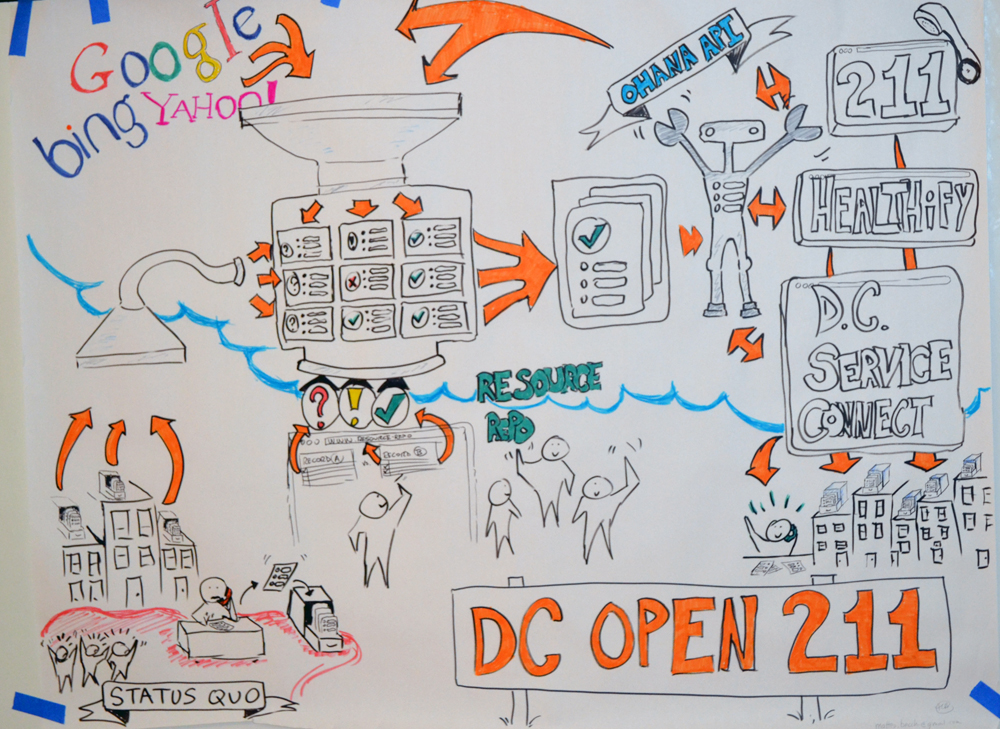 Google
bing
YAHOO!
OHANA API
211
HEALTHIFY
D.C.
SERVICE
CONNECT
RESOURCE
REPO
?
!
RESOURCE REPO
RECORD
VS.
RECORD
STATUS QUO
DC OPEN 211